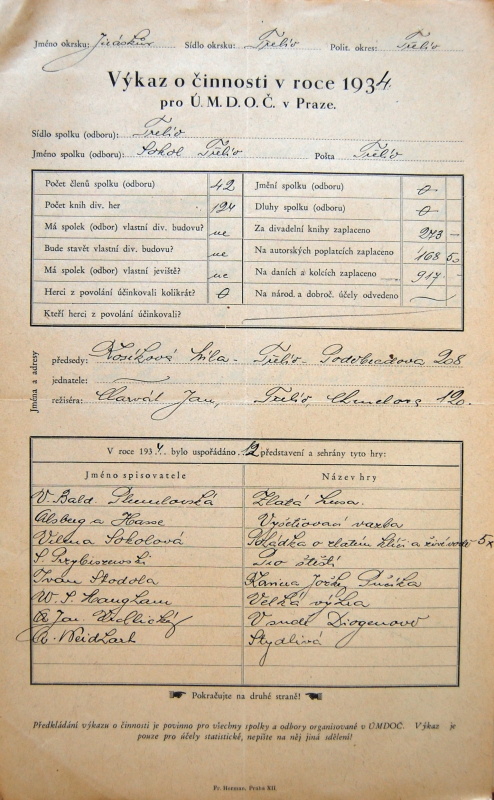 Jméno okrsku: Jiráskův Sídlo okrsku: Třebíč Polit. okres: Třebíč
Výkaz o činnosti v roce 1934.
pro Ú. M. D. O. Č. v Praze.
Sídlo spolku (odboru): Třebíč
Jméno spolku (odboru): Sokol Třebíč Pošta Třebíč
Počet členů spolku (odboru) 42 Jmění spolku (odboru) 0
Počet knih div. her 124 Dluhy spolku (odboru) 0
Má spolek (odbor) vlastní div. budovu? ne Za divadelní knihy zaplaceno 273 —
Bude stavět vlastní div. budovu? ne Na autorských poplatcích zaplaceno 168 50
Má spolek (odbor) vlastní jeviště? ne Na daních a kolcích zaplaceno 917 —
Herci z povolání účinkovali kolikrát? 0 Na národ. a dobroč. účely odvedeno —
Kteří herci z povolání účinkovali?
Jména a adresy
předsedy: Kosíková Míla - Třebíč - Poděbradova 208
jednatele: —
režiséra: Charvát Jan, Třebíč, 120.
V roce 1934. bylo uspořádáno 12 představení a sehrány tyto hry:
Jméno spisovatele Název hry
V. Bald. Plumlovská Zlatá husa.
Alsberg a Hesse Vyšetřovací vazba
Vilma Sokolová Pohádka o zlatém klíči a živé vodě 5x
S. Przybiszewski Pro štěstí
Ivan Stodola Kariéra Jožky Pučíka
W. S. Maugham Velká výhra
Jar. Vrchlický V sudě Diogenově
A. Weidhart Stydlivá
Pokračujte na druhé straně!
Předkládání výkazu o činnosti je povinno pro všechny spolky a odbory organisované v ÚMDOČ. Výkaz je
pouze pro účely statistické, nepište na něj jiná sdělení!
Fr. Borman, Praha XII.